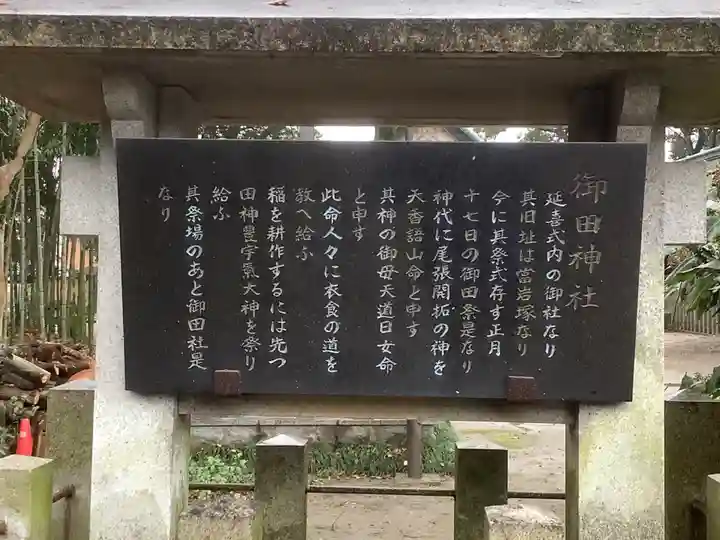 御田神社
延喜式内の御社なり
其旧址は當岩塚なり
今に其祭式存す正月
十七日の御田祭是なり
神代に尾張開拓の神を
天香語山命と申す
其神の御母天道日女命
と申す
此命人々に衣食の道を
教へ給ふ
稲を耕作するには先つ
田神豊宇氣大神を祭り
給ふ
其祭場のあと御田社是
なり